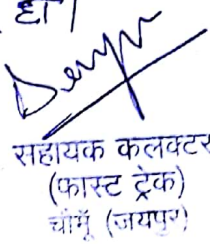 है।
सहायक कलक्टर
(फास्ट ट्रेक)
चौमूँ (जयपुर)